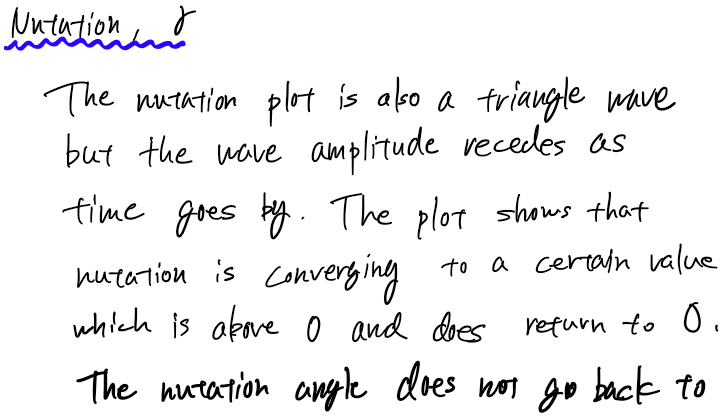 Nutation, γ
The nutation plot is also a triangle wave
but the wave amplitude recedes as
time goes by. The plot shows that
nutation is converging to a certain value
which is above 0 and does return to 0.
The nutation angle does not go back to